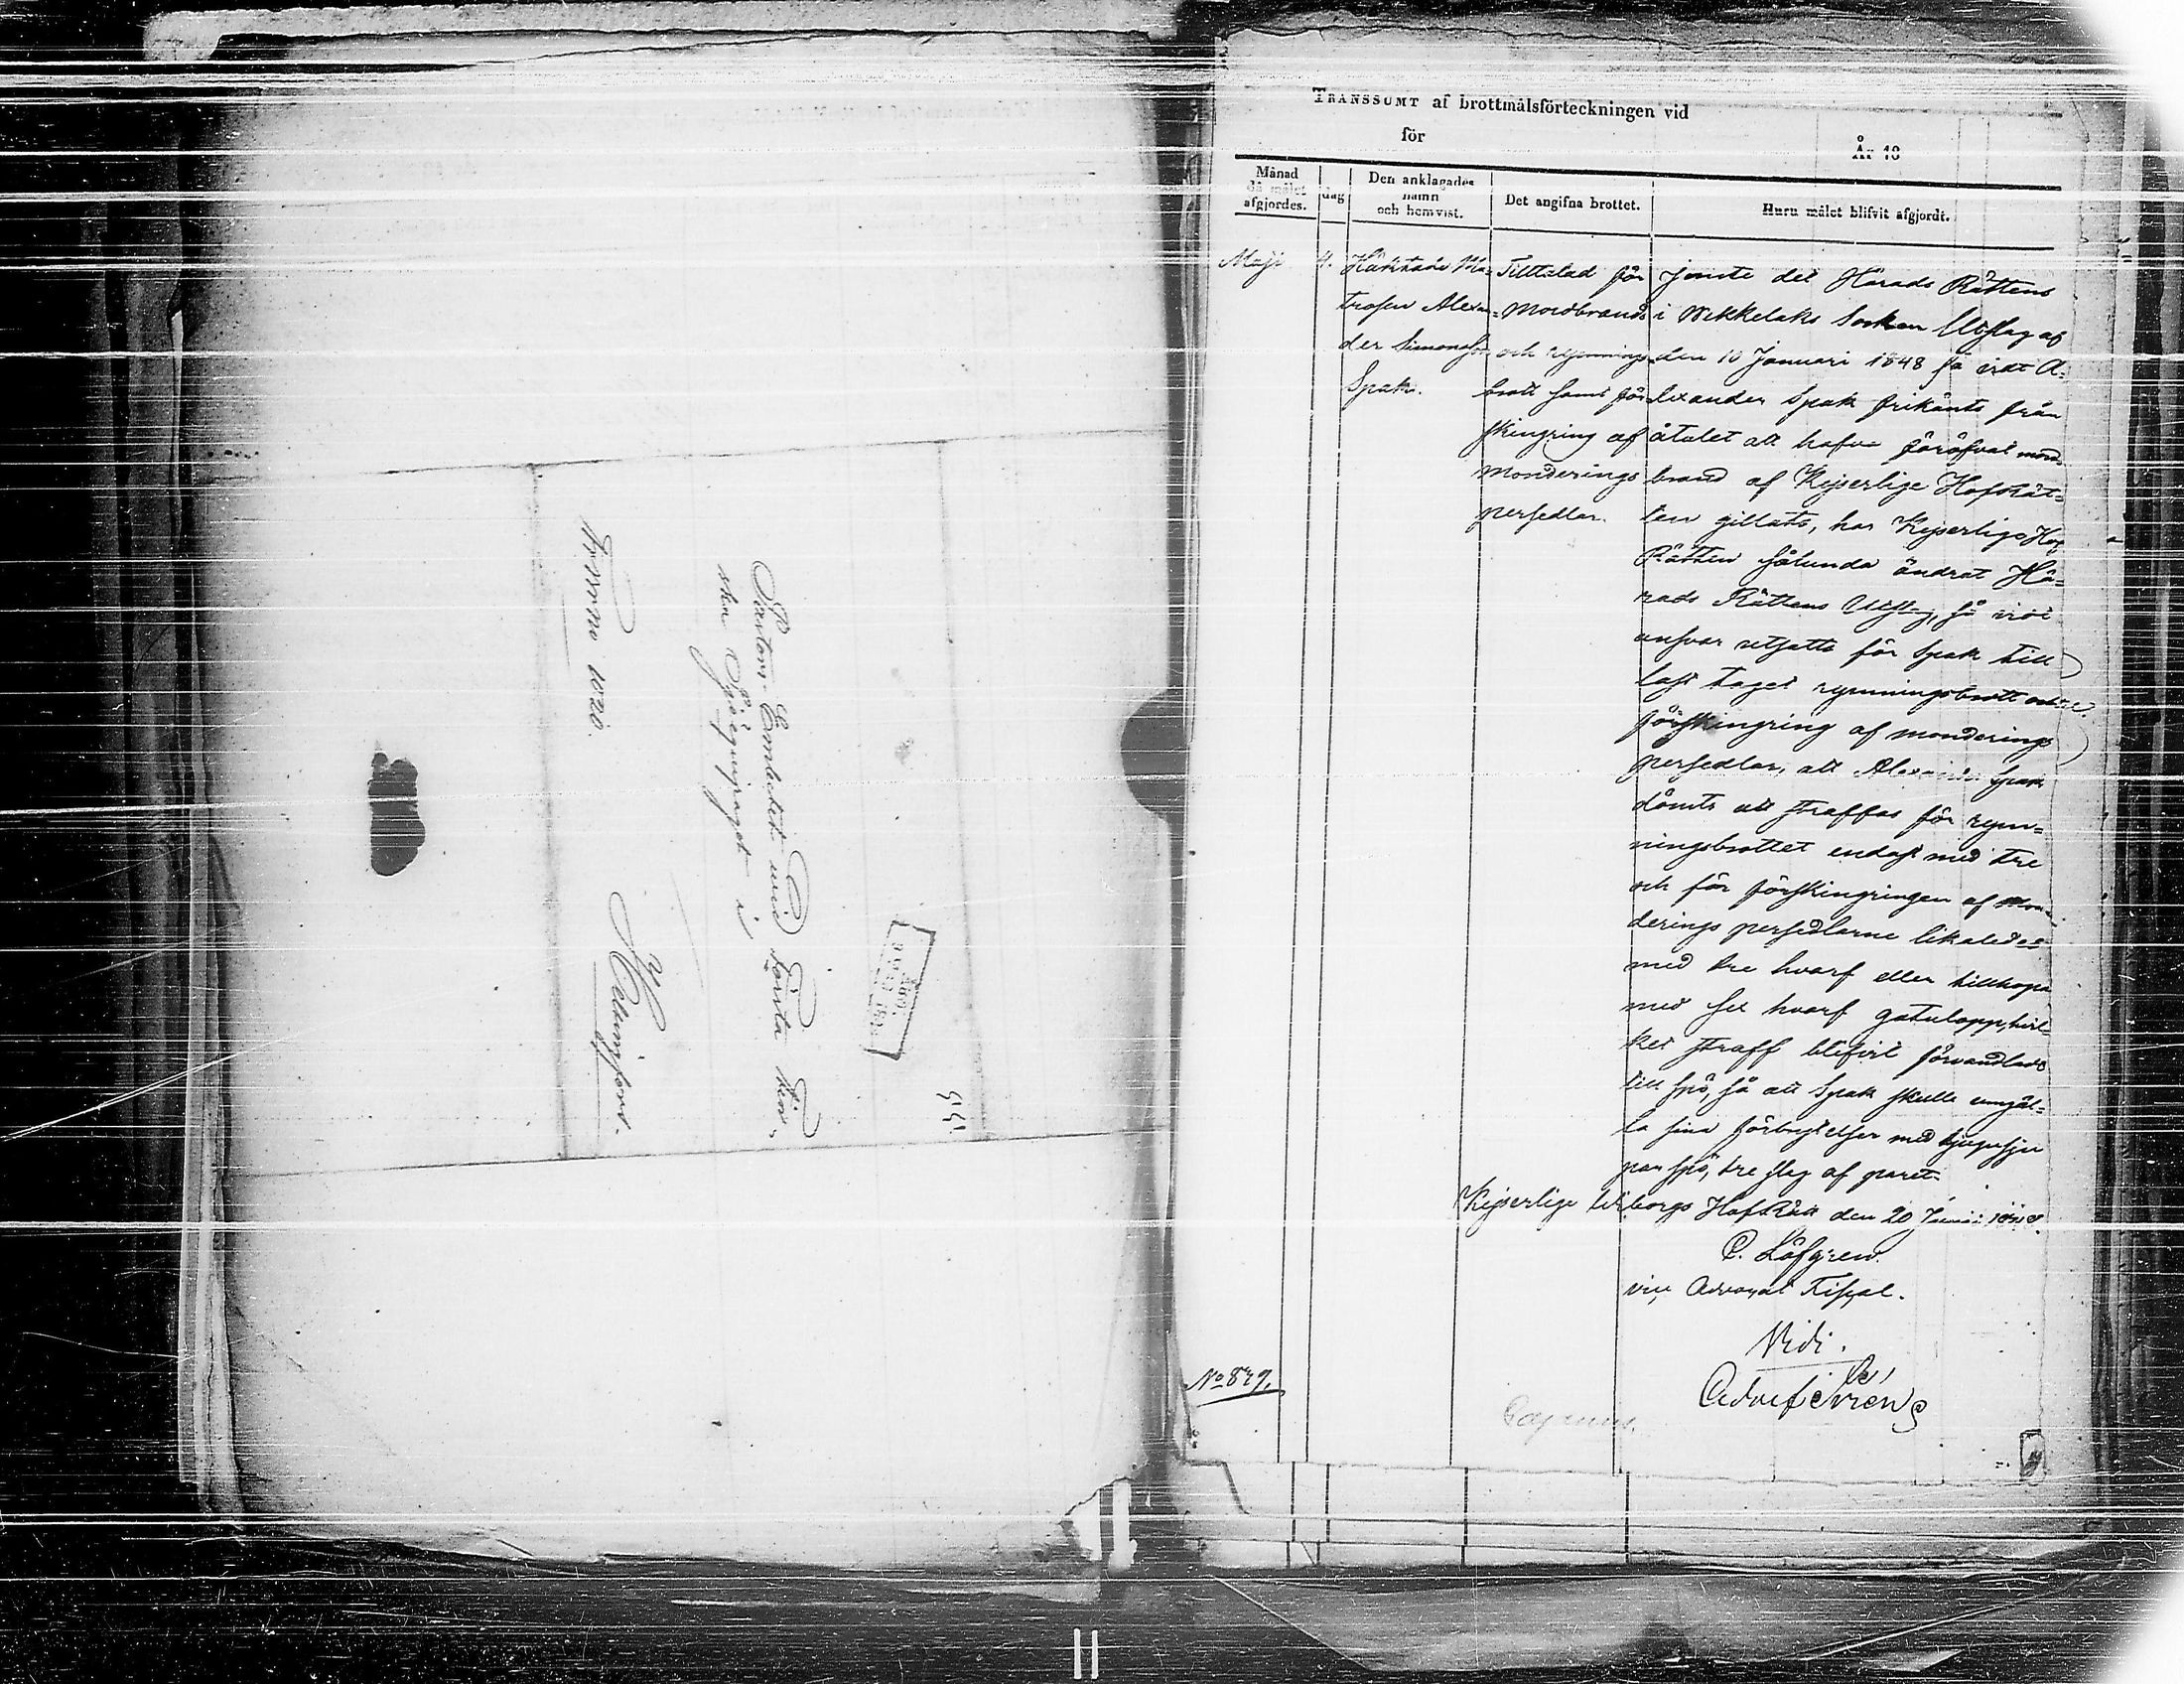 Pastors-Embetet wid Första Fin-
ska Sjöequipaget i
Helsingfors.
TRANSSUMT af brottmålsförteckningen vid
för
År 18
Månad då målet afgjordes.
dag
Den anklagades namn och hemvist.
Det angifna brottet.
Huru målet blifvit afgjordt.
Maji
4.
Häktade Ma-
trosen Alexan-
der Simonsson
Spak.
Tilltalad för
mordbrand
och rymnings
brott samt för-
skingring af
monderings
persedlar.
Jemte det Härads Rättens
i Wekkelaks Socken Utslag af
den 10 Januari 1848 så vidt A-
lexander Spak frikänts från
åtalet att hafva föröfvat mord-
brand af Kejserlige Hofrät-
ten gillats, har Kejserlige Hof
Rätten sålunda ändrat Hä-
rads Rättens Utslag, så vidt
ansvar utsatts för Spak till
last taget rymningsbrott och
förskingring af monderings
persedlar, att Alexander Spak
dömts att straffas för rym-
ningsbrottet endast med tre
och för förskingringen af mon-
derings persedlarne likaledes
med tre hvarf eller tillhopa
med sex hvarf gatulopp, hvil-
ket straff blifvit förvandladt
till spö, så att Spak skulle umgäl-
la sina förbrytelser med tjugusju
par spö, tre slag af paret.
Kejserlige Wiborgs HofRätt den 20 Junii 1848.
C. Löfgren.
vice Advocat Fiscal.
Vidi.
No 849.